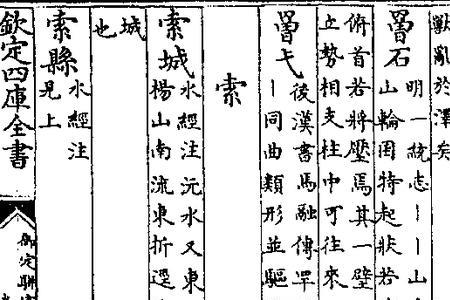 獸亂於澤矣
罾石
明一統志丨丨山
山輪囷特起狀若
俯首若將壓焉其一壁
之勢相支柱中可往來
罾弋
後漢書馬融傳罕
丨同曲類形並驅
索
索城
水經注沅水又東
楊山南流東折逕
城
也
索縣
水經注
見上
欽定四庫全書
御定駢